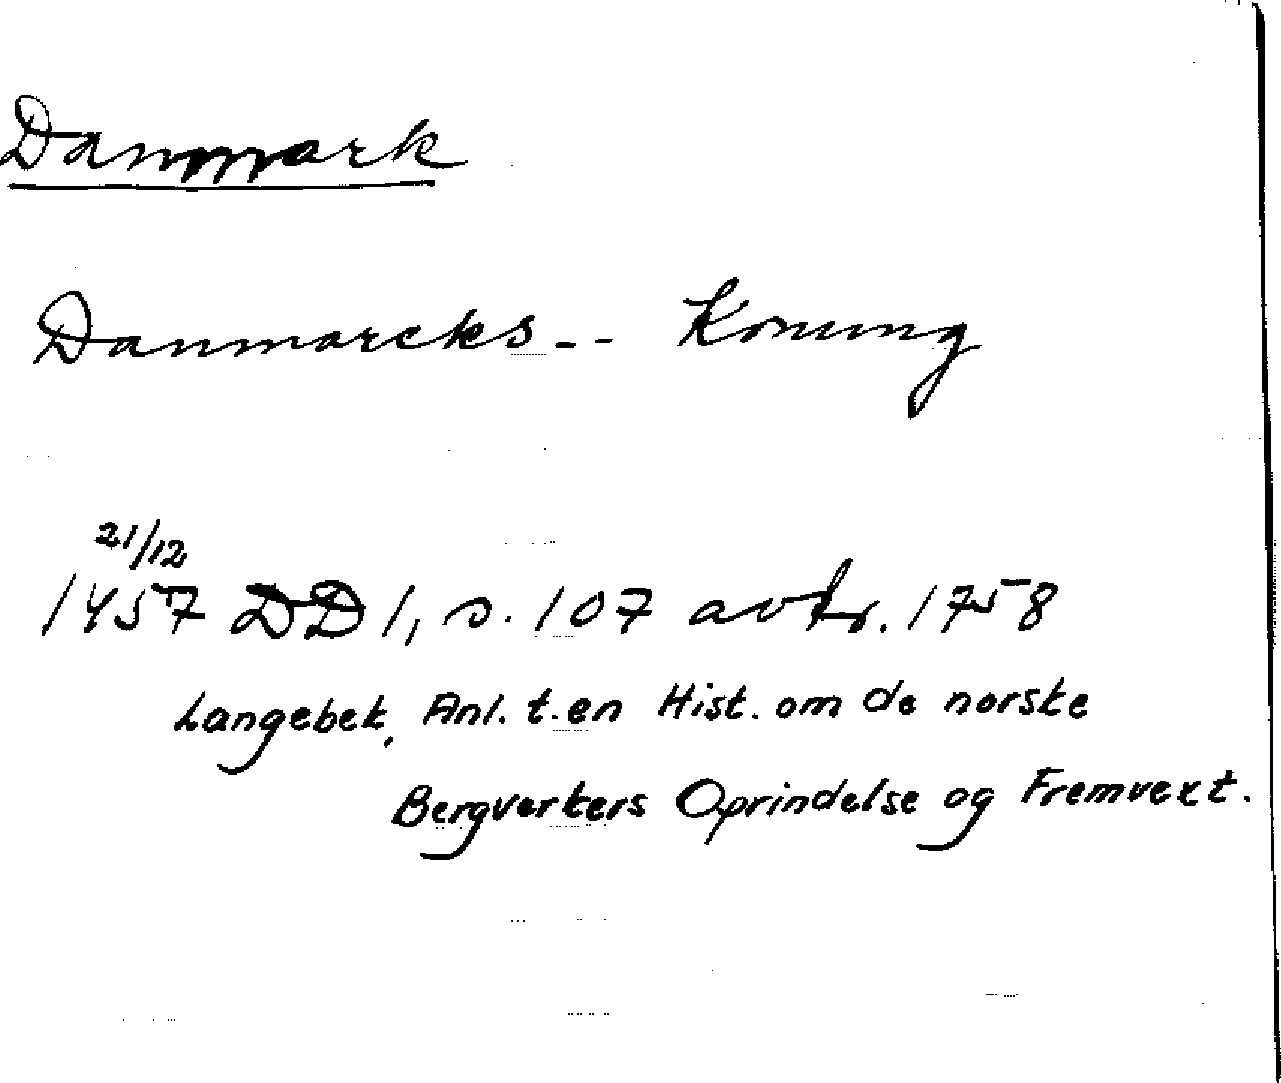 Danmark
Danmarcks -- Konung
21/12
1457 DD 1, s. 107 avtr. 1758
Langebek, Anl. t. en Hist. om de norske
Bergverkers Oprindelse og Fremvext.